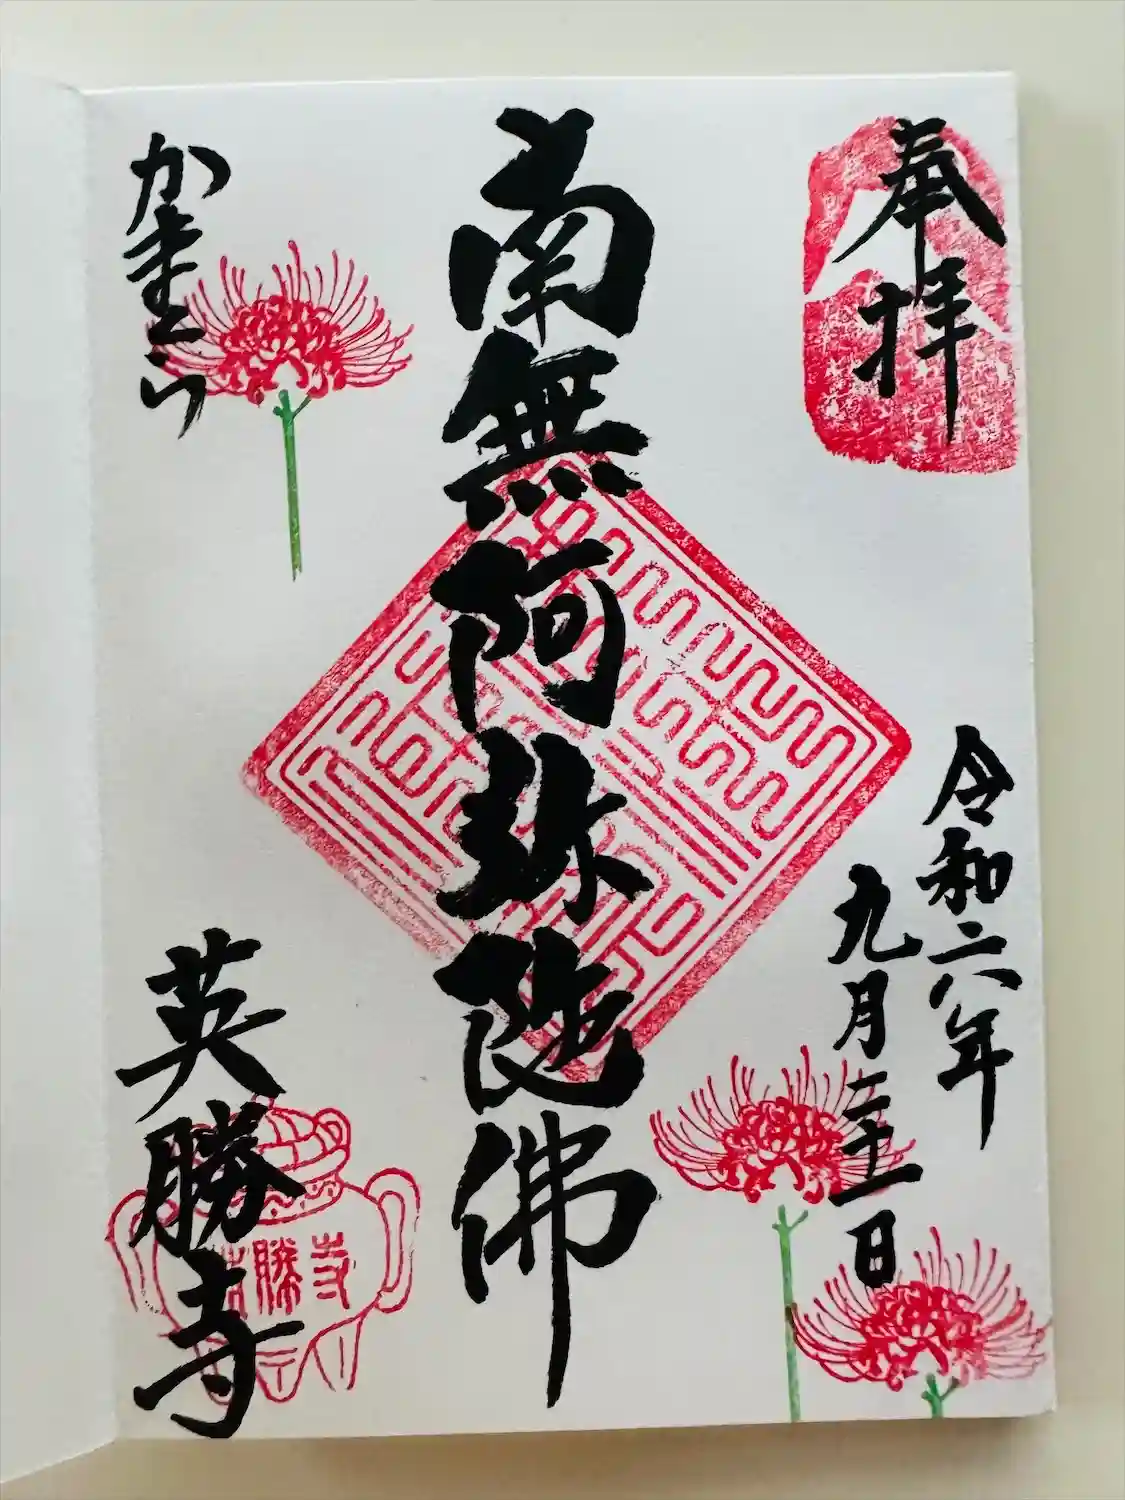 奉拝
令和六年
九月二十一日
南無阿弥陀佛
かまくら
英勝寺
英勝寺